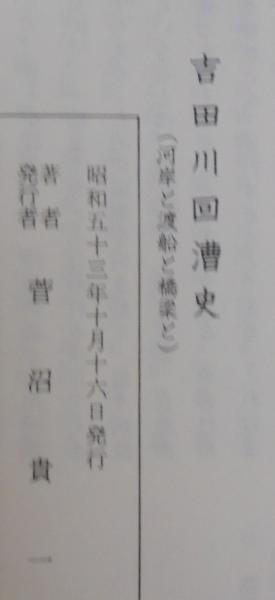 吉田川回漕史
(河岸と渡船と橋梁と)
昭和五十三年十月十六日発行
著者
発行者
菅沼貴一